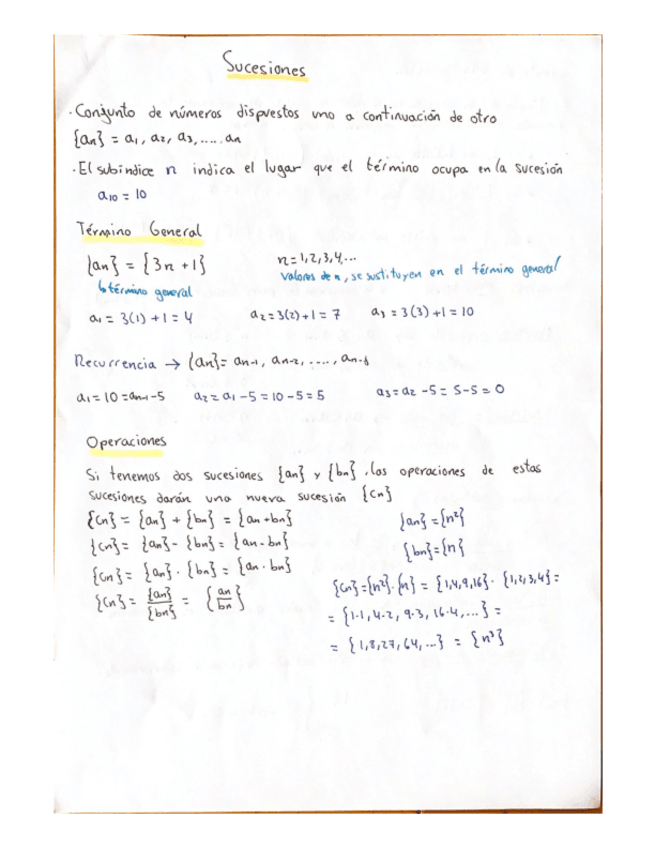 Sucesiones
· Conjunto de números dispuestos uno a continuación de otro
{an} = a₁, a₂, a₃, ..... an
· El subíndice n indica el lugar que el término ocupa en la sucesión
a₁₀ = 10
Término General
{an} = {3n + 1}
n = 1, 2, 3, 4, ...
↳ término general
valores de n, se sustituyen en el término general
a₁ = 3(1) + 1 = 4
a₂ = 3(2) + 1 = 7
a₃ = 3(3) + 1 = 10
Recurrencia → {an} = an-1, an-2, ...., an-k
a₁ = 10 = an-1 - 5
a₂ = a₁ - 5 = 10 - 5 = 5
a₃ = a₂ - 5 = 5 - 5 = 0
Operaciones
Si tenemos dos sucesiones {an} y {bn}, las operaciones de estas
sucesiones darán una nueva sucesión {Cn}
{Cn} = {an} + {bn} = {an + bn}
{Cn} = {an} - {bn} = {an - bn}
{Cn} = {an} · {bn} = {an · bn}
{Cn} = {an}/{bn} = {an/bn}
{an} = {n²}
{bn} = {n}
{Cn} = {n²} · {n} = {1, 4, 9, 16} · {1, 2, 3, 4} =
= {1·1, 4·2, 9·3, 16·4, ...} =
= {1, 8, 27, 64, ...} = {n³}